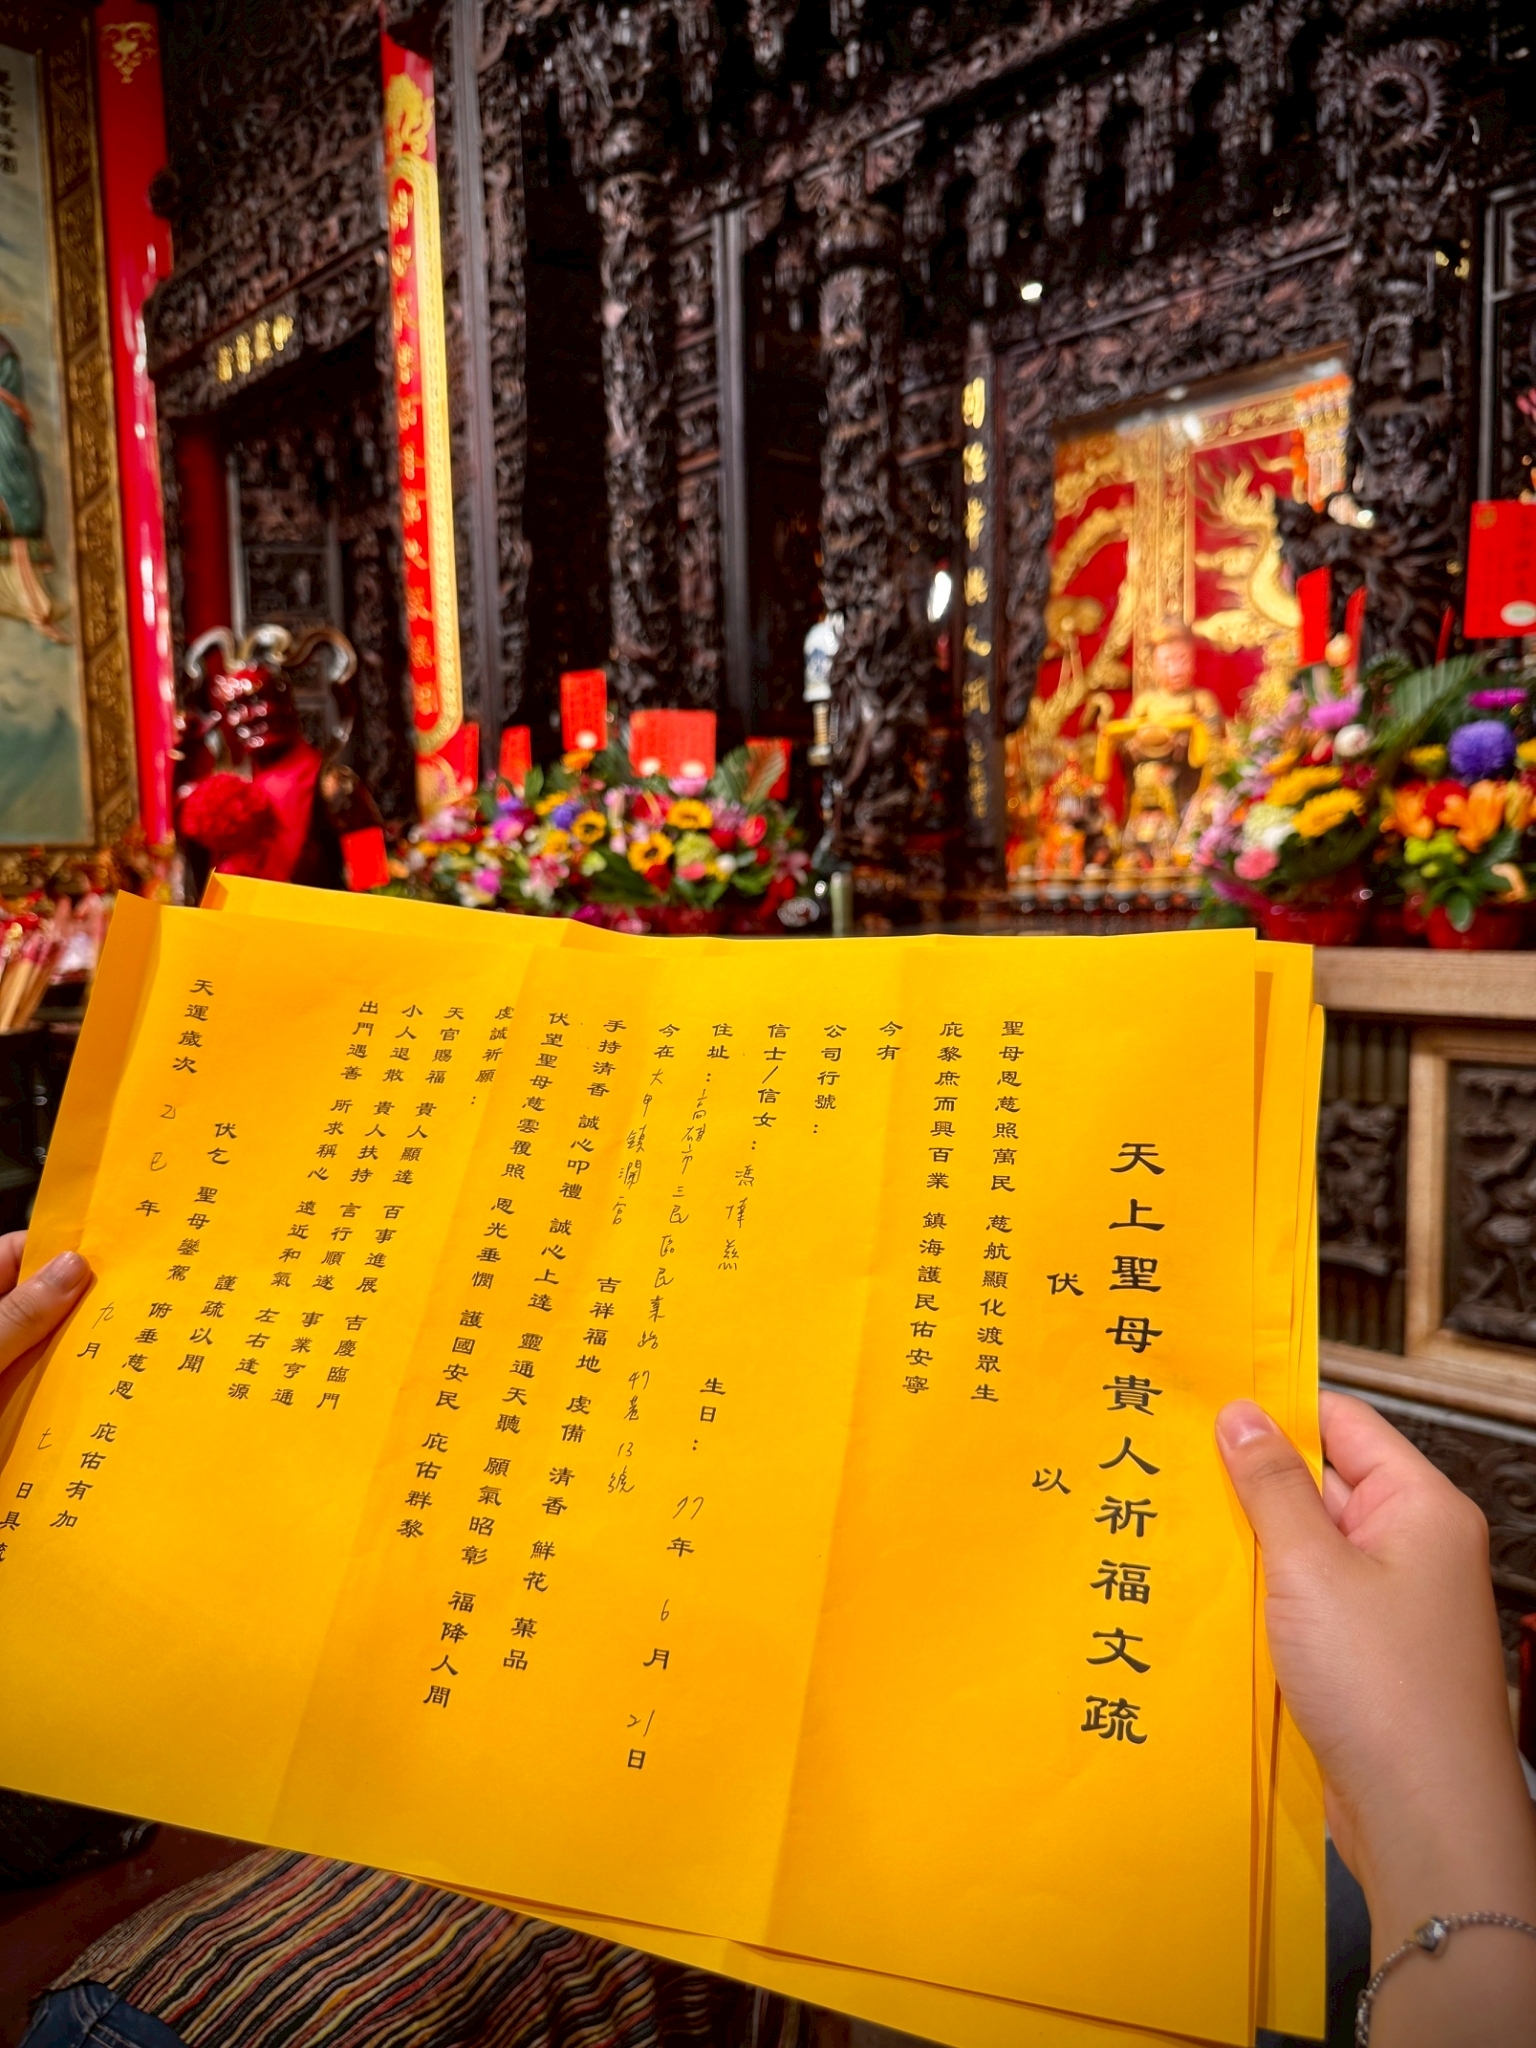 天上聖母貴人祈福文疏
伏 以
聖母恩慈照萬民 慈航顯化渡眾生
庇黎庶而興百業 鎮海護民佑安寧
今有
公司行號：
信士/信女：馮偉慈 生日：77年6月21日
住址：高雄市三民區民業路47巷13號
今在大甲鎮瀾宮 吉祥福地 虔備 清香 鮮花 菓品
手持清香 誠心叩禮 誠心上達 靈通天聽 願氣昭彰 福降人間
伏望聖母慈雲覆照 恩光垂憫 護國安民 庇佑群黎
虔誠祈願：
天官賜福 貴人顯達 百事進展 吉慶臨門
小人退散 貴人扶持 言行順遂 事業亨通
出門遇善 所求稱心 遠近和氣 左右逢源
謹疏以聞
伏乞 聖母鑾駕 俯垂慈恩 庇佑有加
天運歲次 乙巳年 九月 七日具疏